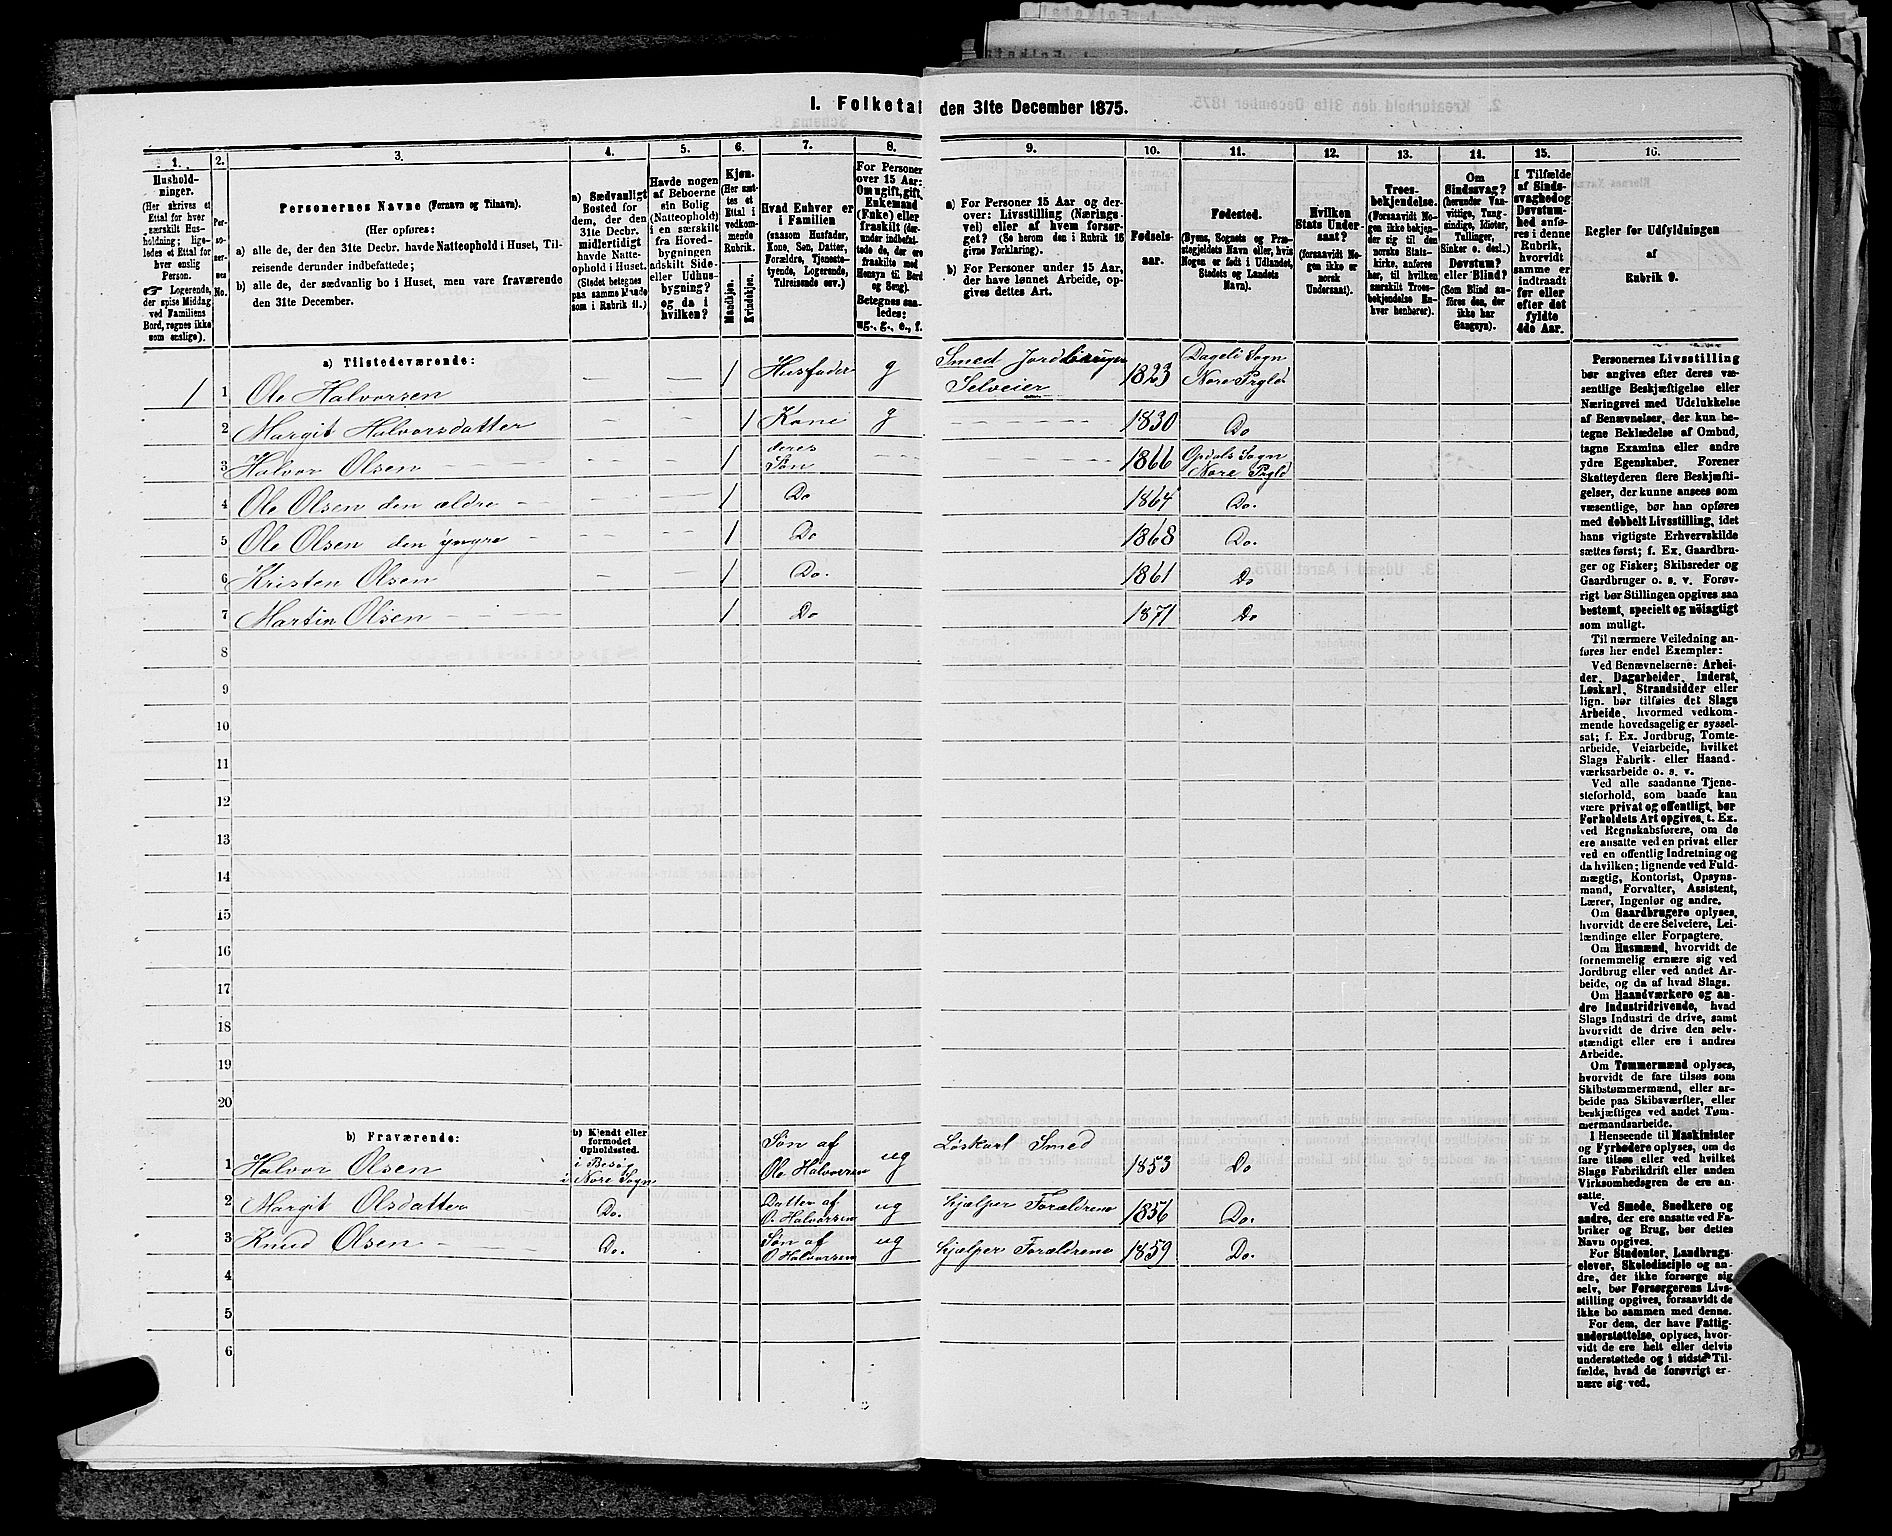 I. Folketal den 31te December 1875.
1. 2. 3. 4. 5. 6. 7. 8. 9. 10. 11. 12. 13. 14. 15. 16.
Hushold-
ninger.
(Her skrives et
Ettal for hver
særskilt Hus-
holdning; lige-
ledes et Ettal for
hver enslig
Person.
☞ Logerende,
der spise Middag
ved Familiens
Bord, regnes ikke
som enslige).
Per-
so-
ner-
nes
No.
Personernes Navne (Fornavn og Tilnavn).
(Her opføres:
a) alle de, der den 31te Decbr. havde Natteophold i Huset, Til-
reisende derunder indbefattede;
b) alle de, der sædvanlig bo i Huset, men vare fraværende
den 31te December.
a) Sædvanligt
Bosted for
dem, der den
31te Decbr.
midlertidigt
havde Natte-
ophold i Huset.
(Stedet betegnes
paa samme Maade
som i Rubrik 11.)
Havde nogen
af Beboerne
ein Bolig
(Natteophold)
i en særskilt
fra Hoved-
bygningen
adskilt Side-
eller Udhus-
bygning?
og da i
hvilken?
Kjøn.
(Her sæt-
tes et
Ettal i
vedkom-
mende
Rubrik.
Mandkjøn.
Kvindekjøn.
Hvad Enhver er
i Familien
(saasom Husfader,
Kone, Søn, Datter,
Forældre, Tjeneste-
tyende, Logerende,
Tilreisende osv.)
For Personer
over 15 Aar:
Om ugift, gift,
Enkemand
(Enke) eller
fraskilt (der-
under indbefat-
tede de, der ere
fraskilte med
Hensyn til Bord
og Seng).
Betegnes saa-
ledes:
ug., g., e., f.
a) For Personer 15 Aar og der-
over: Livsstilling (Nærings-
vei) eller af hvem forsør-
get? (Se herom den i Rubrik 16
givne Forklaring).
b) For Personer under 15 Aar,
der have lønnet Arbeide, op-
gives dettes Art.
Fødsels-
aar.
Fødested.
(Byens, Sognets og Præ-
stegjeldets Navn eller, hvis
Nogen er født i Udlandet,
Stedets og Landets
Navn).
Hvilken
Stats Under-
saat?
(forsaavidt No-
gen ikke er
norsk
Undersaat).
Troes-
bekjendelse.
(Forsaavidt No-
gen ikke bekjen-
der sig til den
norske Stats-
kirke, anføres
her, til hvilken
særskilt Troes-
bekjendelse En-
hver henhører).
Om
Sindssvag?
(herunder Van-
vittige, Tung-
sindige, Idioter,
Tullinger,
Sinker o. desl.)
Døvstum?
eller Blind?
(Som Blind an-
føres den, der
ikke har
Gangsyn).
I Tilfælde
af Sinds-
svaghed og
Døvstum-
hed anfø-
res i denne
Rubrik,
hvorvidt
samme er
indtraadt
før eller
efter det
fyldte
4de Aar.
Regler for Udfyldningen
af
Rubrik 9.
a) Tilstedeværende:
1 1 Ole Halvorsen — — 1 Husfader g Smed Jordbruger Selveier 1823 Dageli Sogn Nore Prgld
2 Margit Halvorsdatter — - 1 Kone g - - - - - - 1830 Do
3 Halvor Olsen - - - — - 1 deres Søn - - - - - - 1866 Opdals Sogn Nore Prgld
4 Ole Olsen den ældre - - — 1 Do 1864 Do.
5 Ole Olsen den yngre - - - 1 Do 1868 Do.
6 Kristen Olsen — - 1 Do. 1861 Do
7 Martin Olsen - - - 1 Do 1871 Do
8
9
10
11
12
13
14
15
16
17
18
19
20
b) Fraværende:
b) Kjendt eller
formodet
Opholdssted.
1 Halvor Olsen i Besøg i Nore Sogn Søn af Ole Halvorsen ug Løskarl Smed 1853 Do
2 Margit Olsdatter Do. Datter af O. Halvorsen ug Hjælper Forældrene 1856 Do.
3 Knud Olsen Do. Søn af O Halvorsen ug Hjælper Forældrene 1859 Do.
4
5
6
Personernes Livsstilling
bør angives efter deres væ-
sentlige Beskjæftigelse eller
Næringsvei med Udelukkelse
af Benævnelser, der kun be-
tegne Beklædelse af Ombud,
tagne Examina eller andre
ydre Egenskaber. Forener
Skatteyderen flere Beskjæfti-
gelser, der kunne ansees som
væsentlige, bør han opføres
med dobbelt Livsstilling, idet
hans vigtigste Erhvervskilde
sættes først; f. Ex. Gaardbru-
ger og Fisker; Skibsreder og
Gaardbruger o. s. v. Forøv-
rigt bør Stillingen opgives saa
bestemt, specielt og nøiagtigt
som muligt.
Til nærmere Veiledning an-
føres her endel Exempler:
Ved Benævnelserne: Arbei-
der, Dagarbeider, Inderst,
Løskarl, Strandsidder eller
lign. bør tilføies det Slags
Arbeide, hvormed vedkom-
mende hovedsagelig er syssel-
sat; f. Ex. Jordbrug, Tomte-
arbeide, Veiarbeide, hvilket
Slags Fabrik- eller Haand-
værksarbeide o. s. v.
Ved alle saadanne Tjene-
steforhold, som baade kan
være privat og offentligt, bør
Forholdets Art opgives, t. Ex.
ved Regnskabsførere, om de
ere ansatte ved en privat eller
ved en offentlig Indretning og
da hvilken; lignende ved Fuld-
mægtig, Kontorist, Opsyns-
mand, Forvalter, Assistent,
Lærer, Ingeniør og andre.
Om Gaardbrugere oplyses,
hvorvidt de ere Selveiere, Lei-
lændinge eller Forpagtere.
Om Husmænd, hvorvidt de
fornemmelig ernære sig ved
Jordbrug eller ved andet Ar-
beide, og da af hvad Slags.
Om Haandværkere og an-
dre Industridrivende, hvad
Slags Industri de drive, samt
hvorvidt de drive den selv-
stændigt eller ere i andres
Arbeide.
Om Tømmermænd oplyses,
hvorvidt de fare tilsøs som
Skibstømmermænd, eller ar-
beide paa Skibsværfter, eller
beskjæftiges ved andet Tøm-
mermandsarbeide.
I Henseende til Maskinister
og Fyrbødere oplyses, om de
fare tilsøs eller ved hvilket
Slags Fabrikdrift eller anden
Virksomhedsgren de ere an-
satte.
Ved Smede, Snedkere og
andre, der ere ansatte ved Fa-
briker og Brug, bør dettes
Navn opgives.
For Studenter, Landbrugs-
elever, Skoledisciple og an-
dre, der ikke forsørge sig
selv, bør Forsørgerens Livs-
stilling opgives, forsaavidt de
ikke bo sammen med denne.
For dem, der have Fattig-
understøttelse, oplyses, hvor-
vidt de ere helt eller delvis
understøttede og i sidste Til-
fælde, hvad de forøvrigt er-
nære sig ved.